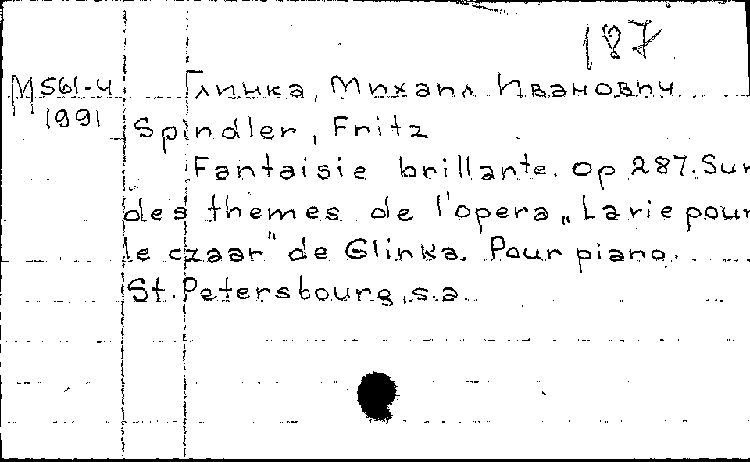 187
М 561-4 Глинка, Михаил Иванович
1991
Spindler, Fritz
Fantaisie brillante. Op 287. Sur
des themes de l'opera „La vie pour
le czaar" de Glinka. Pour piano.
St. Petersbourg, s.a.